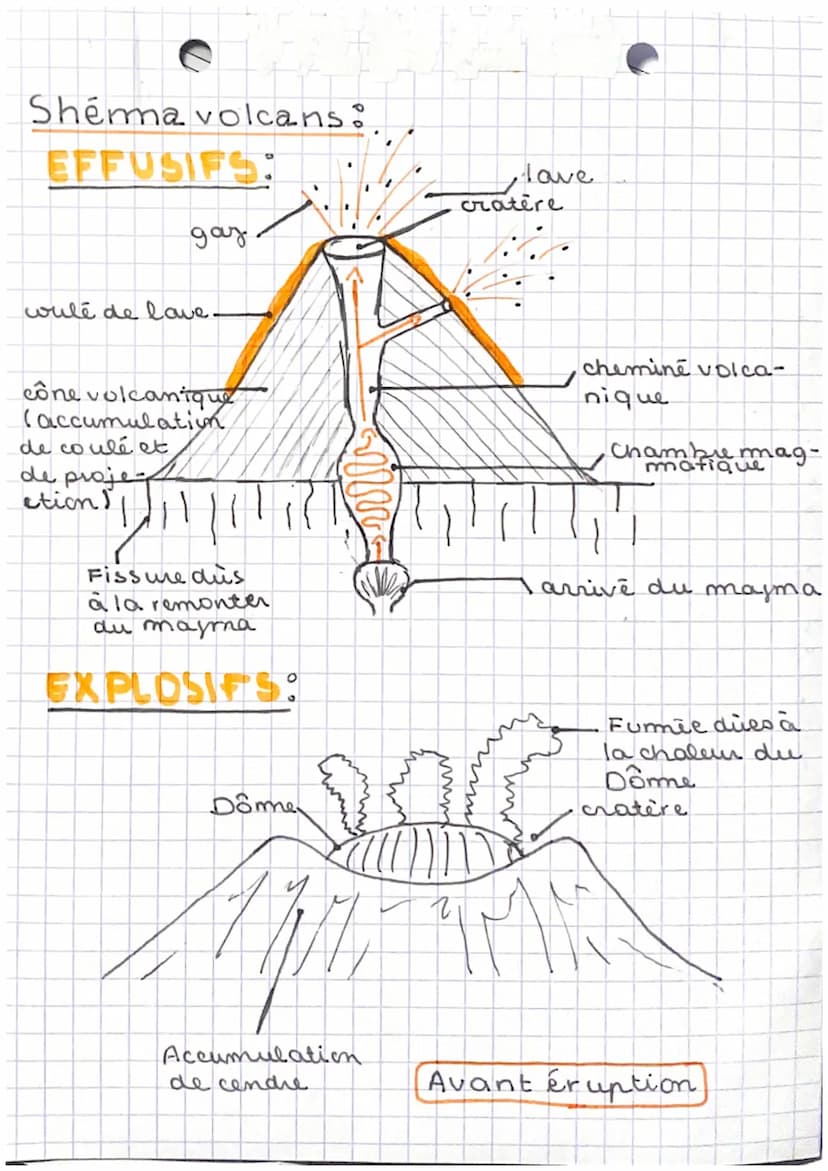 Shérma volcans:
EFFUSIFS:
lave
cratère
gaz
coulé de lave
cheminé volca-
nique
cône volcanique
(accumulation
de coulé et
de proje-
ction)
Chambre mag-
matique
Fissure dûs
à la remonter
du magma
arrivé du magma
EXPLOSIFS:
Fumée dûes à
la chaleur du
Dôme
cratère
Dôme
Accumulation
de cendre
Avant éruption